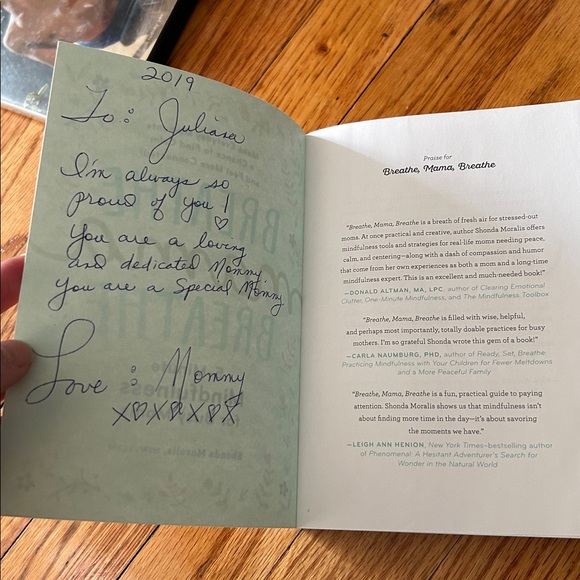 2019
To: Juliana
I'm always so
proud of you!
You are a loving
and dedicated Mommy
You are a Special Mommy
Love: Mommy
X♡X♡X♡X
Praise for
Breathe, Mama, Breathe
"Breathe, Mama, Breathe is a breath of fresh air for stressed-out
moms. At once practical and creative, author Shonda Moralis offers
mindfulness tools and strategies for real-life moms needing peace,
calm, and centering—along with a dash of compassion and humor
that come from her own experiences as both a mom and a long-time
mindfulness expert. This is an excellent and much-needed book!"
—DONALD ALTMAN, MA, LPC, author of Clearing Emotional
Clutter, One-Minute Mindfulness, and The Mindfulness Toolbox
"Breathe, Mama, Breathe is filled with wise, helpful,
and perhaps most importantly, totally doable practices for busy
mothers. I'm so grateful Shonda wrote this gem of a book!"
—CARLA NAUMBURG, PHD, author of Ready, Set, Breathe:
Practicing Mindfulness with Your Children for Fewer Meltdowns
and a More Peaceful Family
"Breathe, Mama, Breathe is a fun, practical guide to paying
attention. Shonda Moralis shows us that mindfulness isn't
about finding more time in the day—it's about savoring
the moments we have."
—LEIGH ANN HENION, New York Times–bestselling author
of Phenomenal: A Hesitant Adventurer's Search for
Wonder in the Natural World